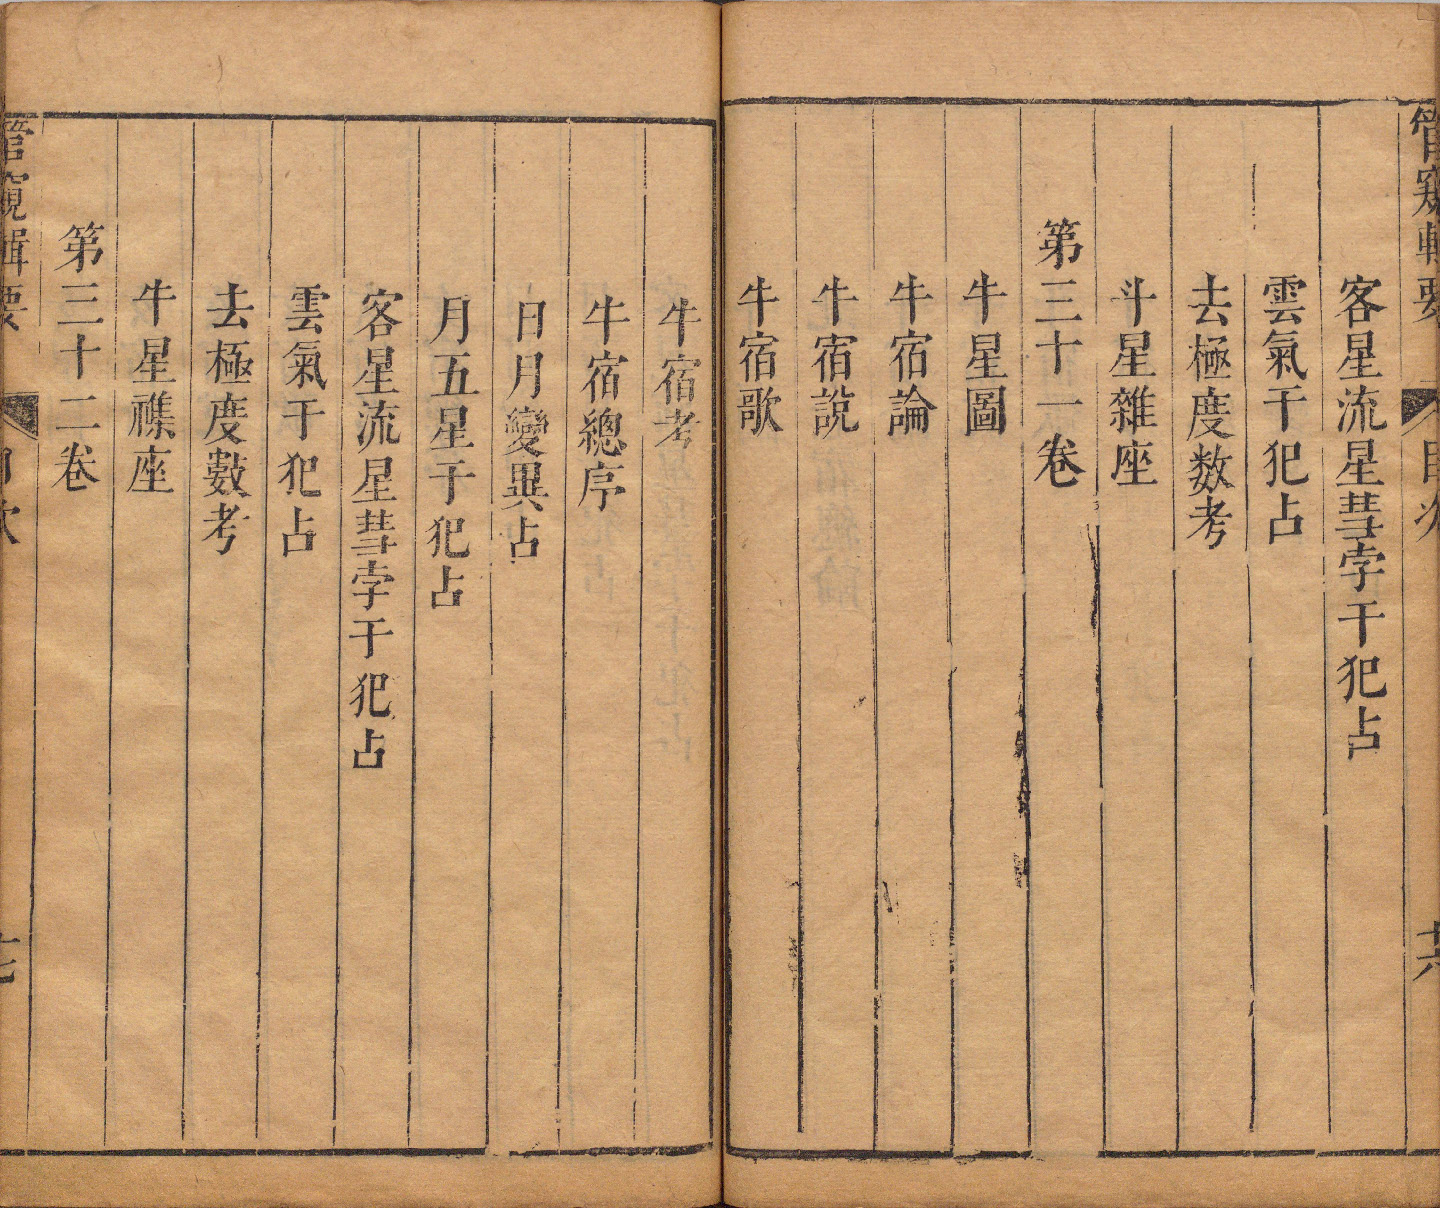 管窺輯要
目次
十六
客星流星彗孛干犯占
雲氣干犯占
去極度数考
斗星雜座
第三十一卷
牛星圖
牛宿論
牛宿說
牛宿歌
牛宿考
牛宿總序
日月變異占
月五星干犯占
客星流星彗孛干犯占
雲氣干犯占
去極度數考
牛星襍座
第三十二卷
管窺輯要
目次
十七